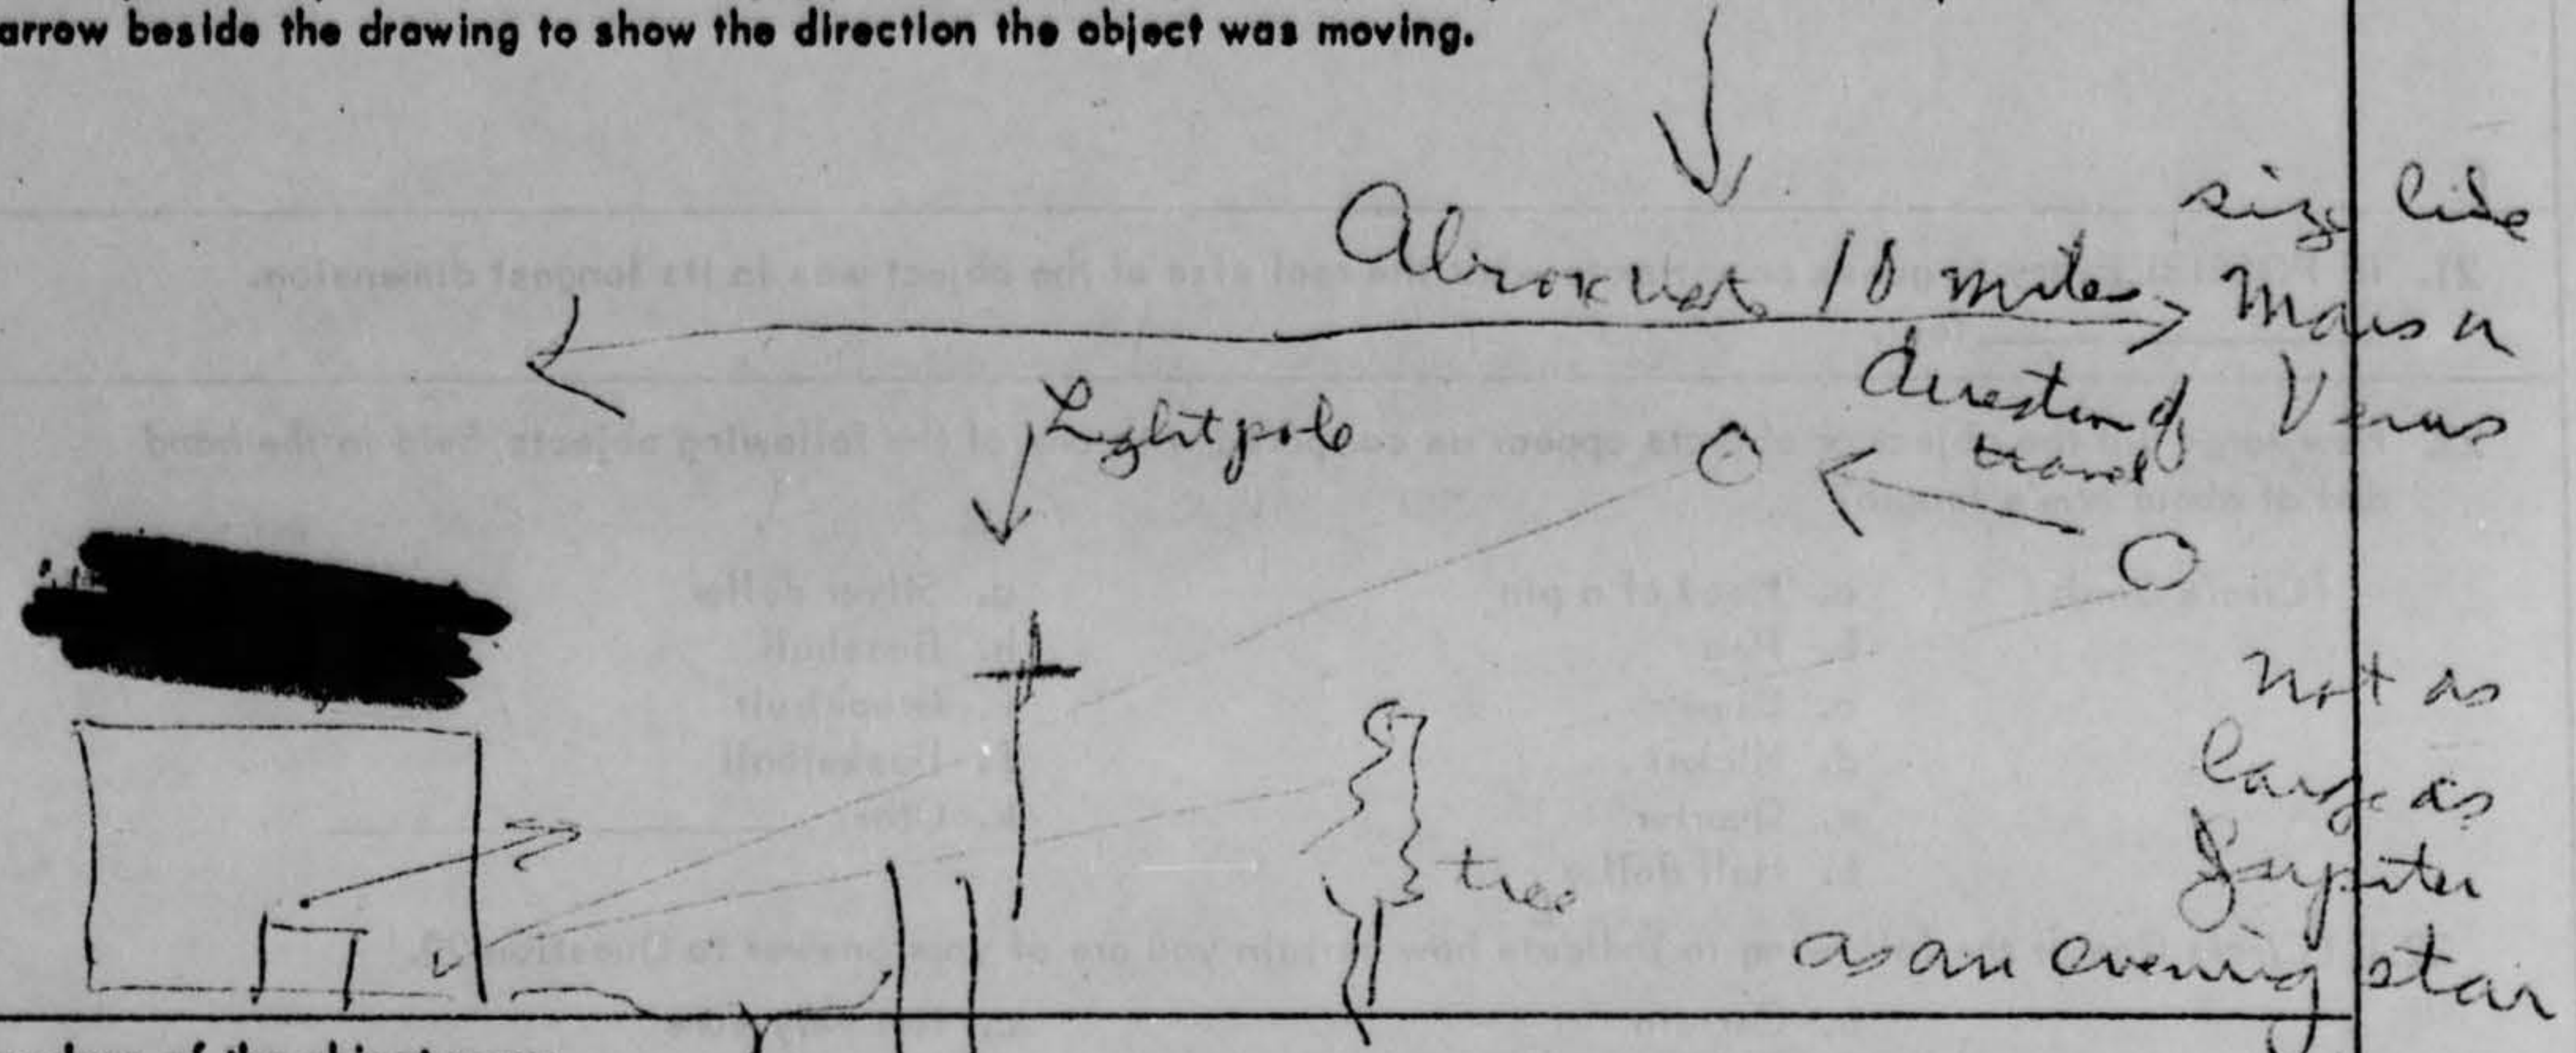 arrow beside the drawing to show the direction the object was moving.
size like
10 miles
Mars or
Venus
direction of
travel
Lightpole
not as
large as
Jupiter
as an evening star
tree